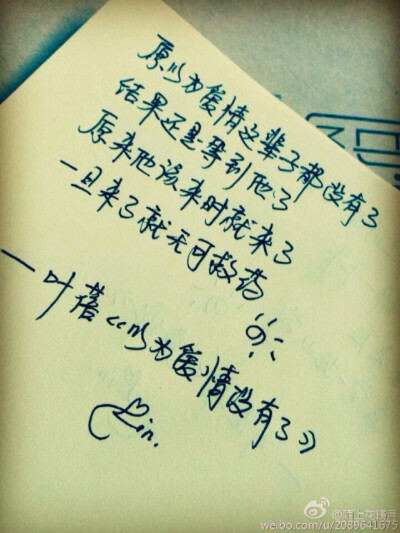 原以为爱情这辈子都没有了
结果还是等到他了
原来他该来时就来了
一旦来了就无可救药
一叶蓓《以为爱情没有了》
Lin.
weibo.com/u/2089641675